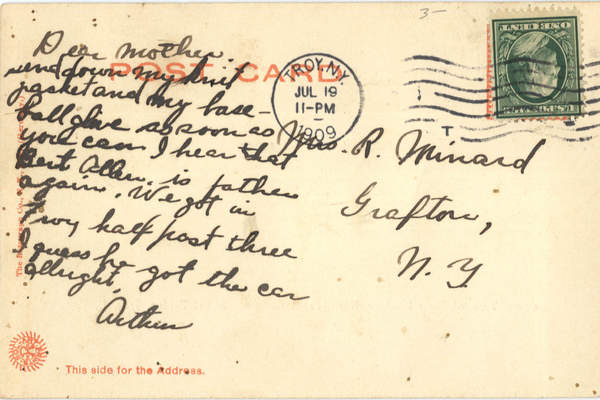 3-
POST CARD
Dear mother
send down my knit
jacket and my base-
ball glove as soon as
you can I hear that
Bert Allen is father
again. We got in
Troy half past three
I guess he got the car
allright.
Arthur
TROY, N.Y.
JUL 19
11-PM
1909
T
Mrs. R. Minard
Grafton,
N.Y
This side for the Address.